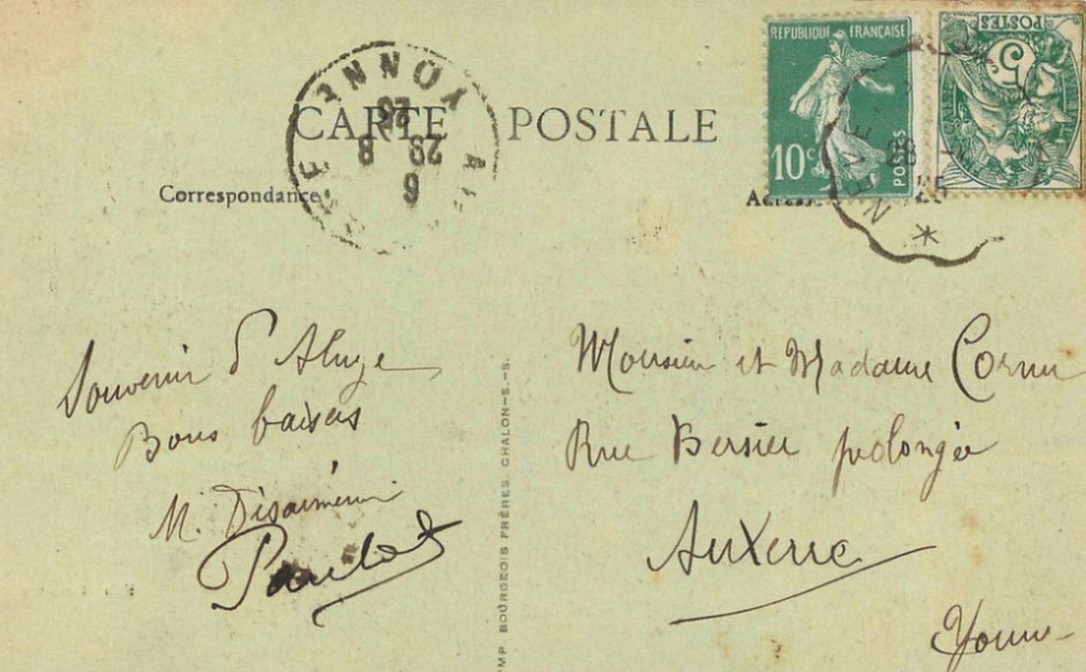 CARTE POSTALE
Correspondance
RÉPUBLIQUE FRANÇAISE
10c
POSTES
POSTES
5
YONNE
6
29 8
25
25
Souvenir d'Aluze
Bons baisers
M.
Paulot
IMP BOURGEOIS FRÈRES, CHALON-S.-S.
Monsieur et Madame Cornu
Rue Bersier prolongée
Auxerre
Yonne